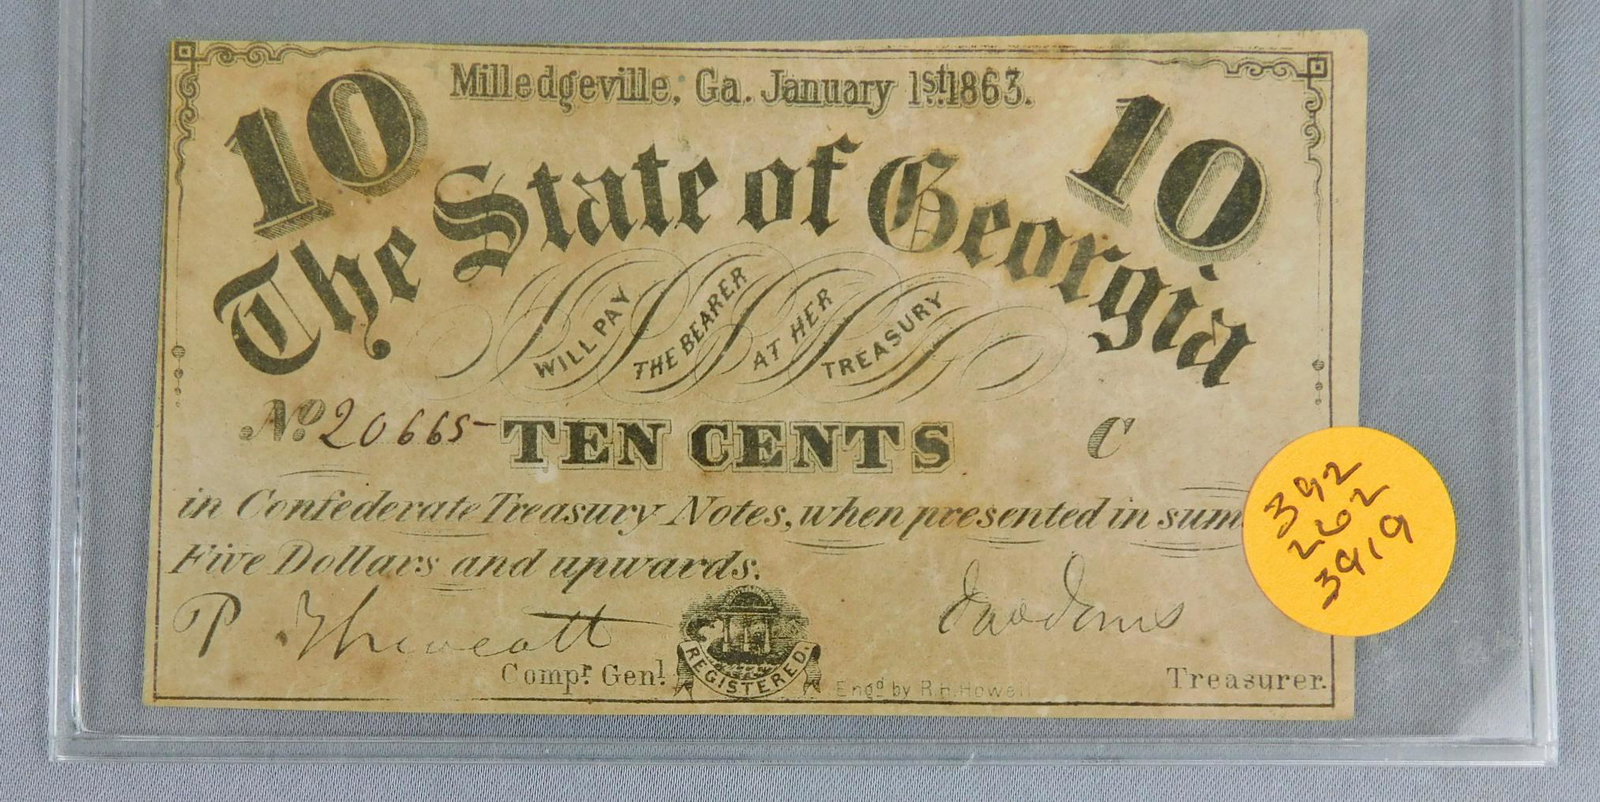 Milledgeville, Ga. January 1st 1863.
10 10
The State of Georgia
WILL PAY
THE BEARER
AT HER
TREASURY
No. 20665 TEN CENTS C
in Confederate Treasury Notes, when presented in sum
Five Dollars and upwards.
P
REGISTERED.
Compr. Genl.
Engd by R.H. Howell
Treasurer.
392
262
3919